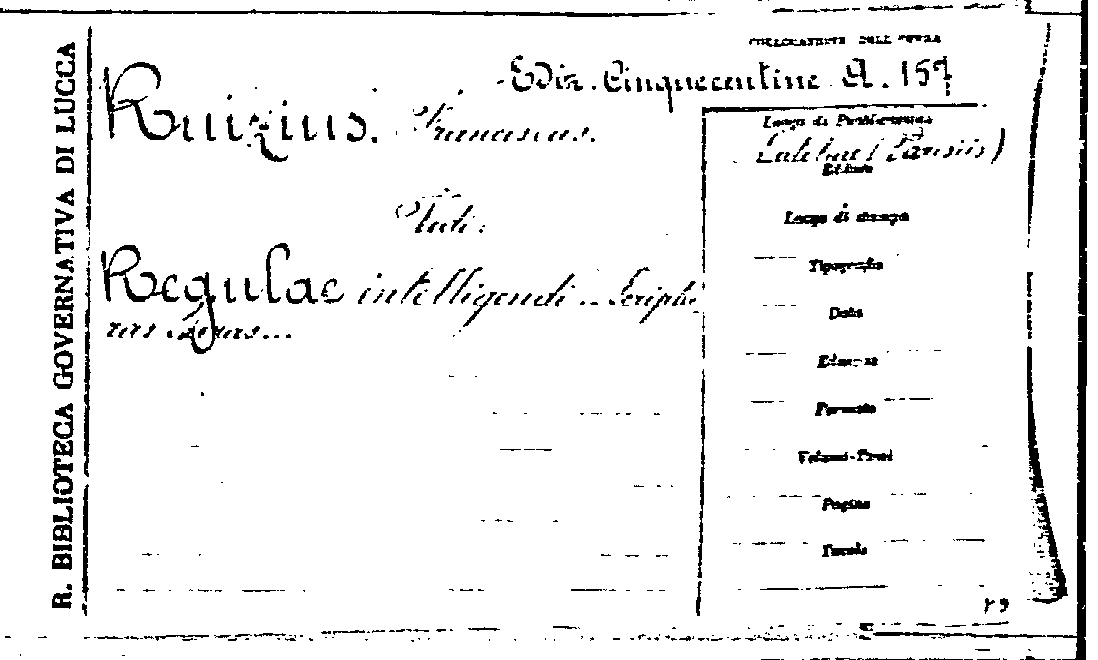 R. BIBLIOTECA GOVERNATIVA DI LUCCA
COLLOCAZIONE DELL'OPERA
Ediz. Cinquecentine A. 157
Ruizius. Franciscus.
Vidi:
Regulae intelligendi .. Scriptu
ras Sacras...
Luogo di Pubblicazione
(Parisiis)
Editore
Luogo di stampa
Tipografia
Data
Edizione
Formato
Volumi-Tomi
Pagine
Tavole